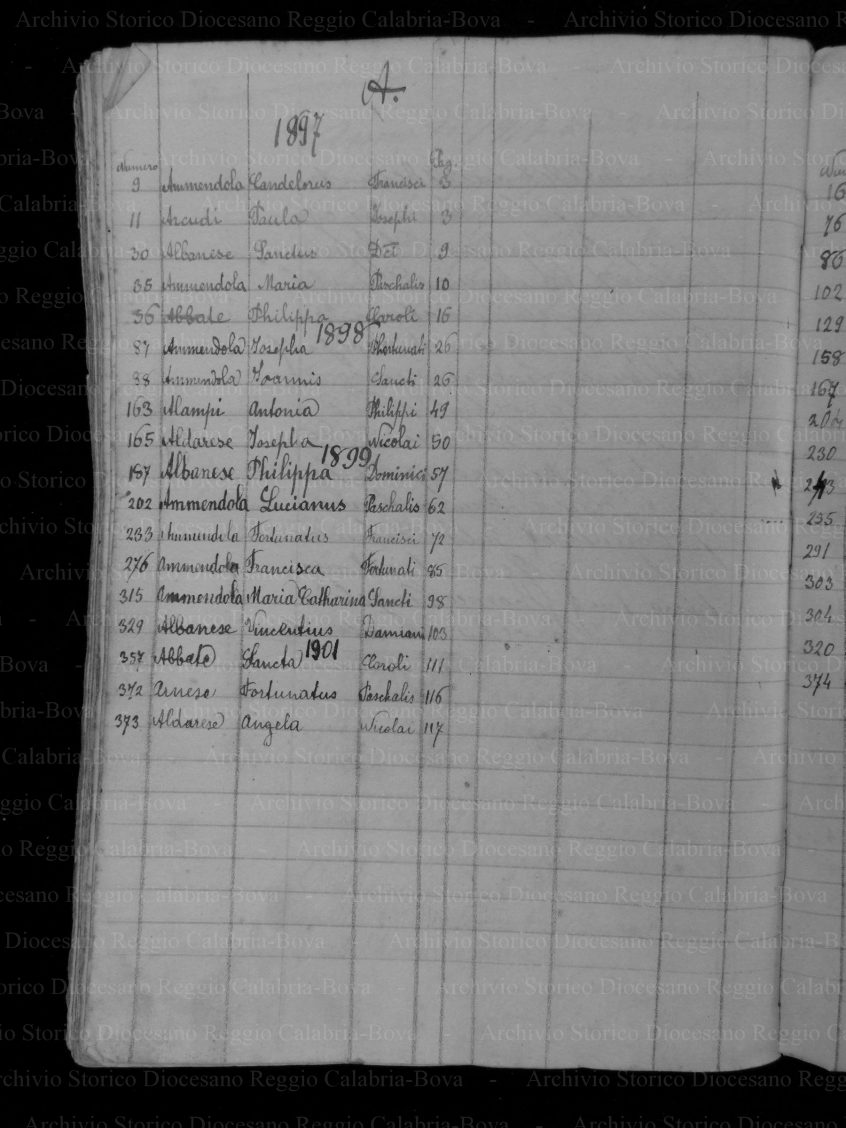 A.
1897
Numero Pag.
9 Ammendola Candelorus Francisci 3
11 Arcudi Paula Josephi 3
30 Albanese Sanctus 9
35 Ammendola Maria Paschalis 10
36 Abbate Philippa Caroli 16
1898
87 Ammendola Josepha Fhortunati 26
88 Ammendola Joannis Sancti 26
163 Alampi Antonia Philippi 49
165 Aldarese Josepha Nicolai 50
1899
187 Albanese Philippa Dominici 57
202 Ammendola Lucianus Paschalis 62
233 Ammendola Fortunatus Francisci 72
276 Ammendola Francisca Fortunati 85
315 Ammendola Maria Catharina Sancti 98
329 Albanese Vincentius Damiani 103
1901
357 Abbate Sancta Caroli 111
372 Arnese Fortunatus Paschalis 116
373 Aldarese Angela Nicolai 117
16
76
86
102
129
158
167
204
230
235
291
303
304
320
374
Archivio Storico Diocesano Reggio Calabria-Bova